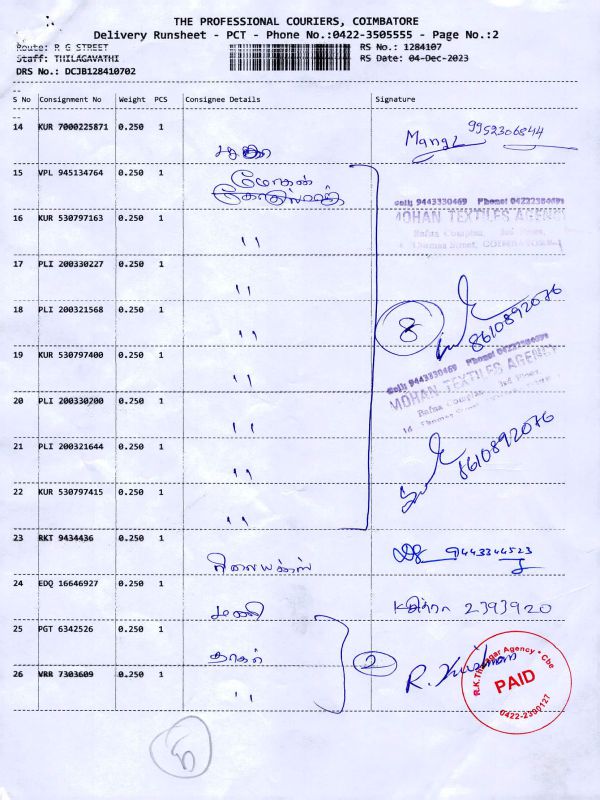 THE PROFESSIONAL COURIERS, COIMBATORE
Delivery Runsheet - PCT - Phone No.:0422-3505555 - Page No.:2
Route: R G STREET RS No.: 1284107
Staff: THILAGAVATHI RS Date: 04-Dec-2023
DRS No.: DCJB128410702
S No Consignment No Weight PCS Consignee Details Signature
14 KUR 7000225871 0.250 1 9952306844
15 VPL 945134764 0.250 1 மோகன்
Cell: 9443330469 Phone: 04222380895
MOHAN TEXTILES AGENCY
16 KUR 530797163 0.250 1 " Bafna Complex, 3rd Floor,
Thomas Street, COIMBATORE
17 PLI 200330227 0.250 1 "
18 PLI 200321568 0.250 1 " 8 8610892076
19 KUR 530797400 0.250 1 "
Cell: 9443330469
MOHAN TEXTILES AGENCY
20 PLI 200330200 0.250 1 " Bafna Complex, 3rd Floor,
Thomas Street
21 PLI 200321644 0.250 1 " 8610892076
22 KUR 530797415 0.250 1 "
23 RKT 9434436 0.250 1 9443344523
24 EDQ 16646927 0.250 1 மணி 2393920
25 PGT 6342526 0.250 1 2
26 VRR 7303609 0.250 1 "
Agency * Cbe
PAID